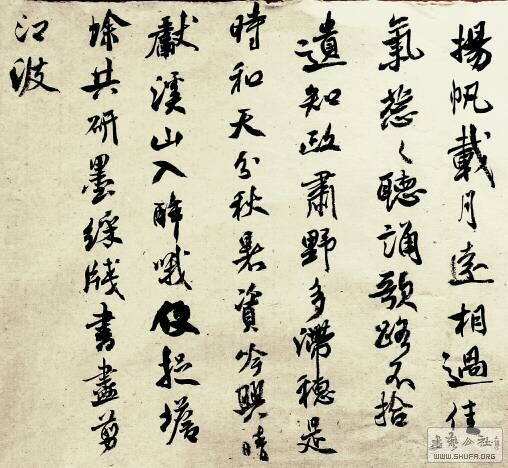 揚帆載月遠相過佳
氣葱〻聽誦歌路不拾
遺知政肅野多滯穗是
時和天分秋暑資吟興晴
獻溪山入醉哦便捉蟾
蜍共研墨綵牋書盡剪
江波
書藝公社
WWW.SHUFA.ORG